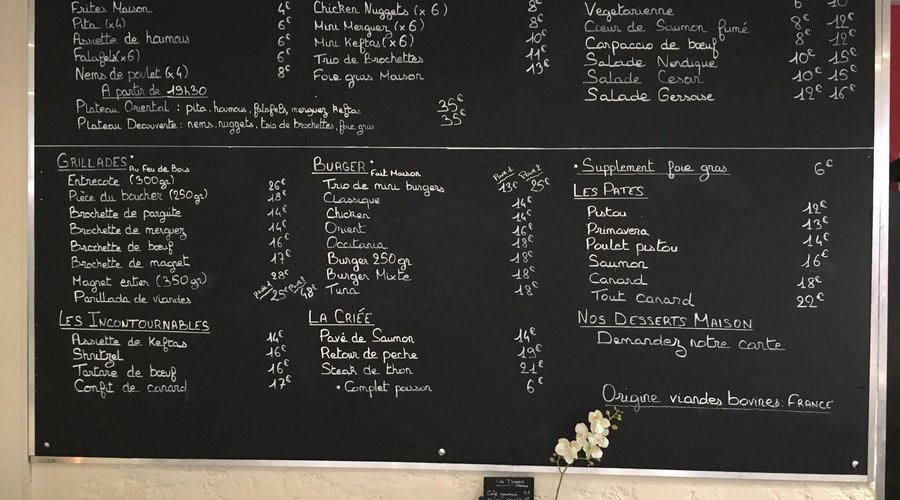 Frites Maison 4€
Pita (x4) 6€
Assiette de houmous 6€
Falafels (x6) 6€
Nems de poulet (x4) 8€
A partir de 19h30
Plateau Oriental : pita, houmous, falafels, merguez, keftas 35€
Plateau Decouverte : nems, nuggets, trio de brochettes, foie gras 35€
Chicken Nuggets (x6) 8€
Mini Merguez (x6) 8€
Mini Keftas (x6) 10€
Trio de Brochettes 11€
Foie gras Maison 13€
Vegetarienne 6€ 10€
Cœur de Saumon fumé 8€ 12€
Carpaccio de bœuf 8€ 12€
Salade Nordique 10€ 15€
Salade Cesar 10€ 15€
Salade Gersoise 12€ 16€
GRILLADES * Au Feu de Bois
Entrecote (300gr) 26€
Pièce du boucher (250gr) 18€
Brochette de 14€
Brochette de merguez 14€
Brochette de bœuf 16€
Brochette de magret 17€
Magret entier (350gr) 28€
Parillada de viandes 25€ 48€
LES INCONTOURNABLES
Assiette de Keftas 14€
Shnitzel 16€
Tartare de bœuf 16€
Confit de canard 17€
BURGER * Fait Maison
Trio de mini burgers 13€ 25€
Classique 14€
Chicken 14€
Orient 16€
Occitania 18€
Burger 250gr 18€
Burger Mixte 18€
Tuna 18€
LA CRIÉE
Pavé de Saumon 14€
Retour de peche 19€
Steak de thon 21€
* Complet poisson 6€
* Supplement foie gras 6€
LES PATES
Pistou 12€
Primavera 13€
Poulet pistou 14€
Saumon 16€
Canard 18€
Tout canard 22€
NOS DESSERTS MAISON
Demandez notre carte
Origine viandes bovines : FRANCE